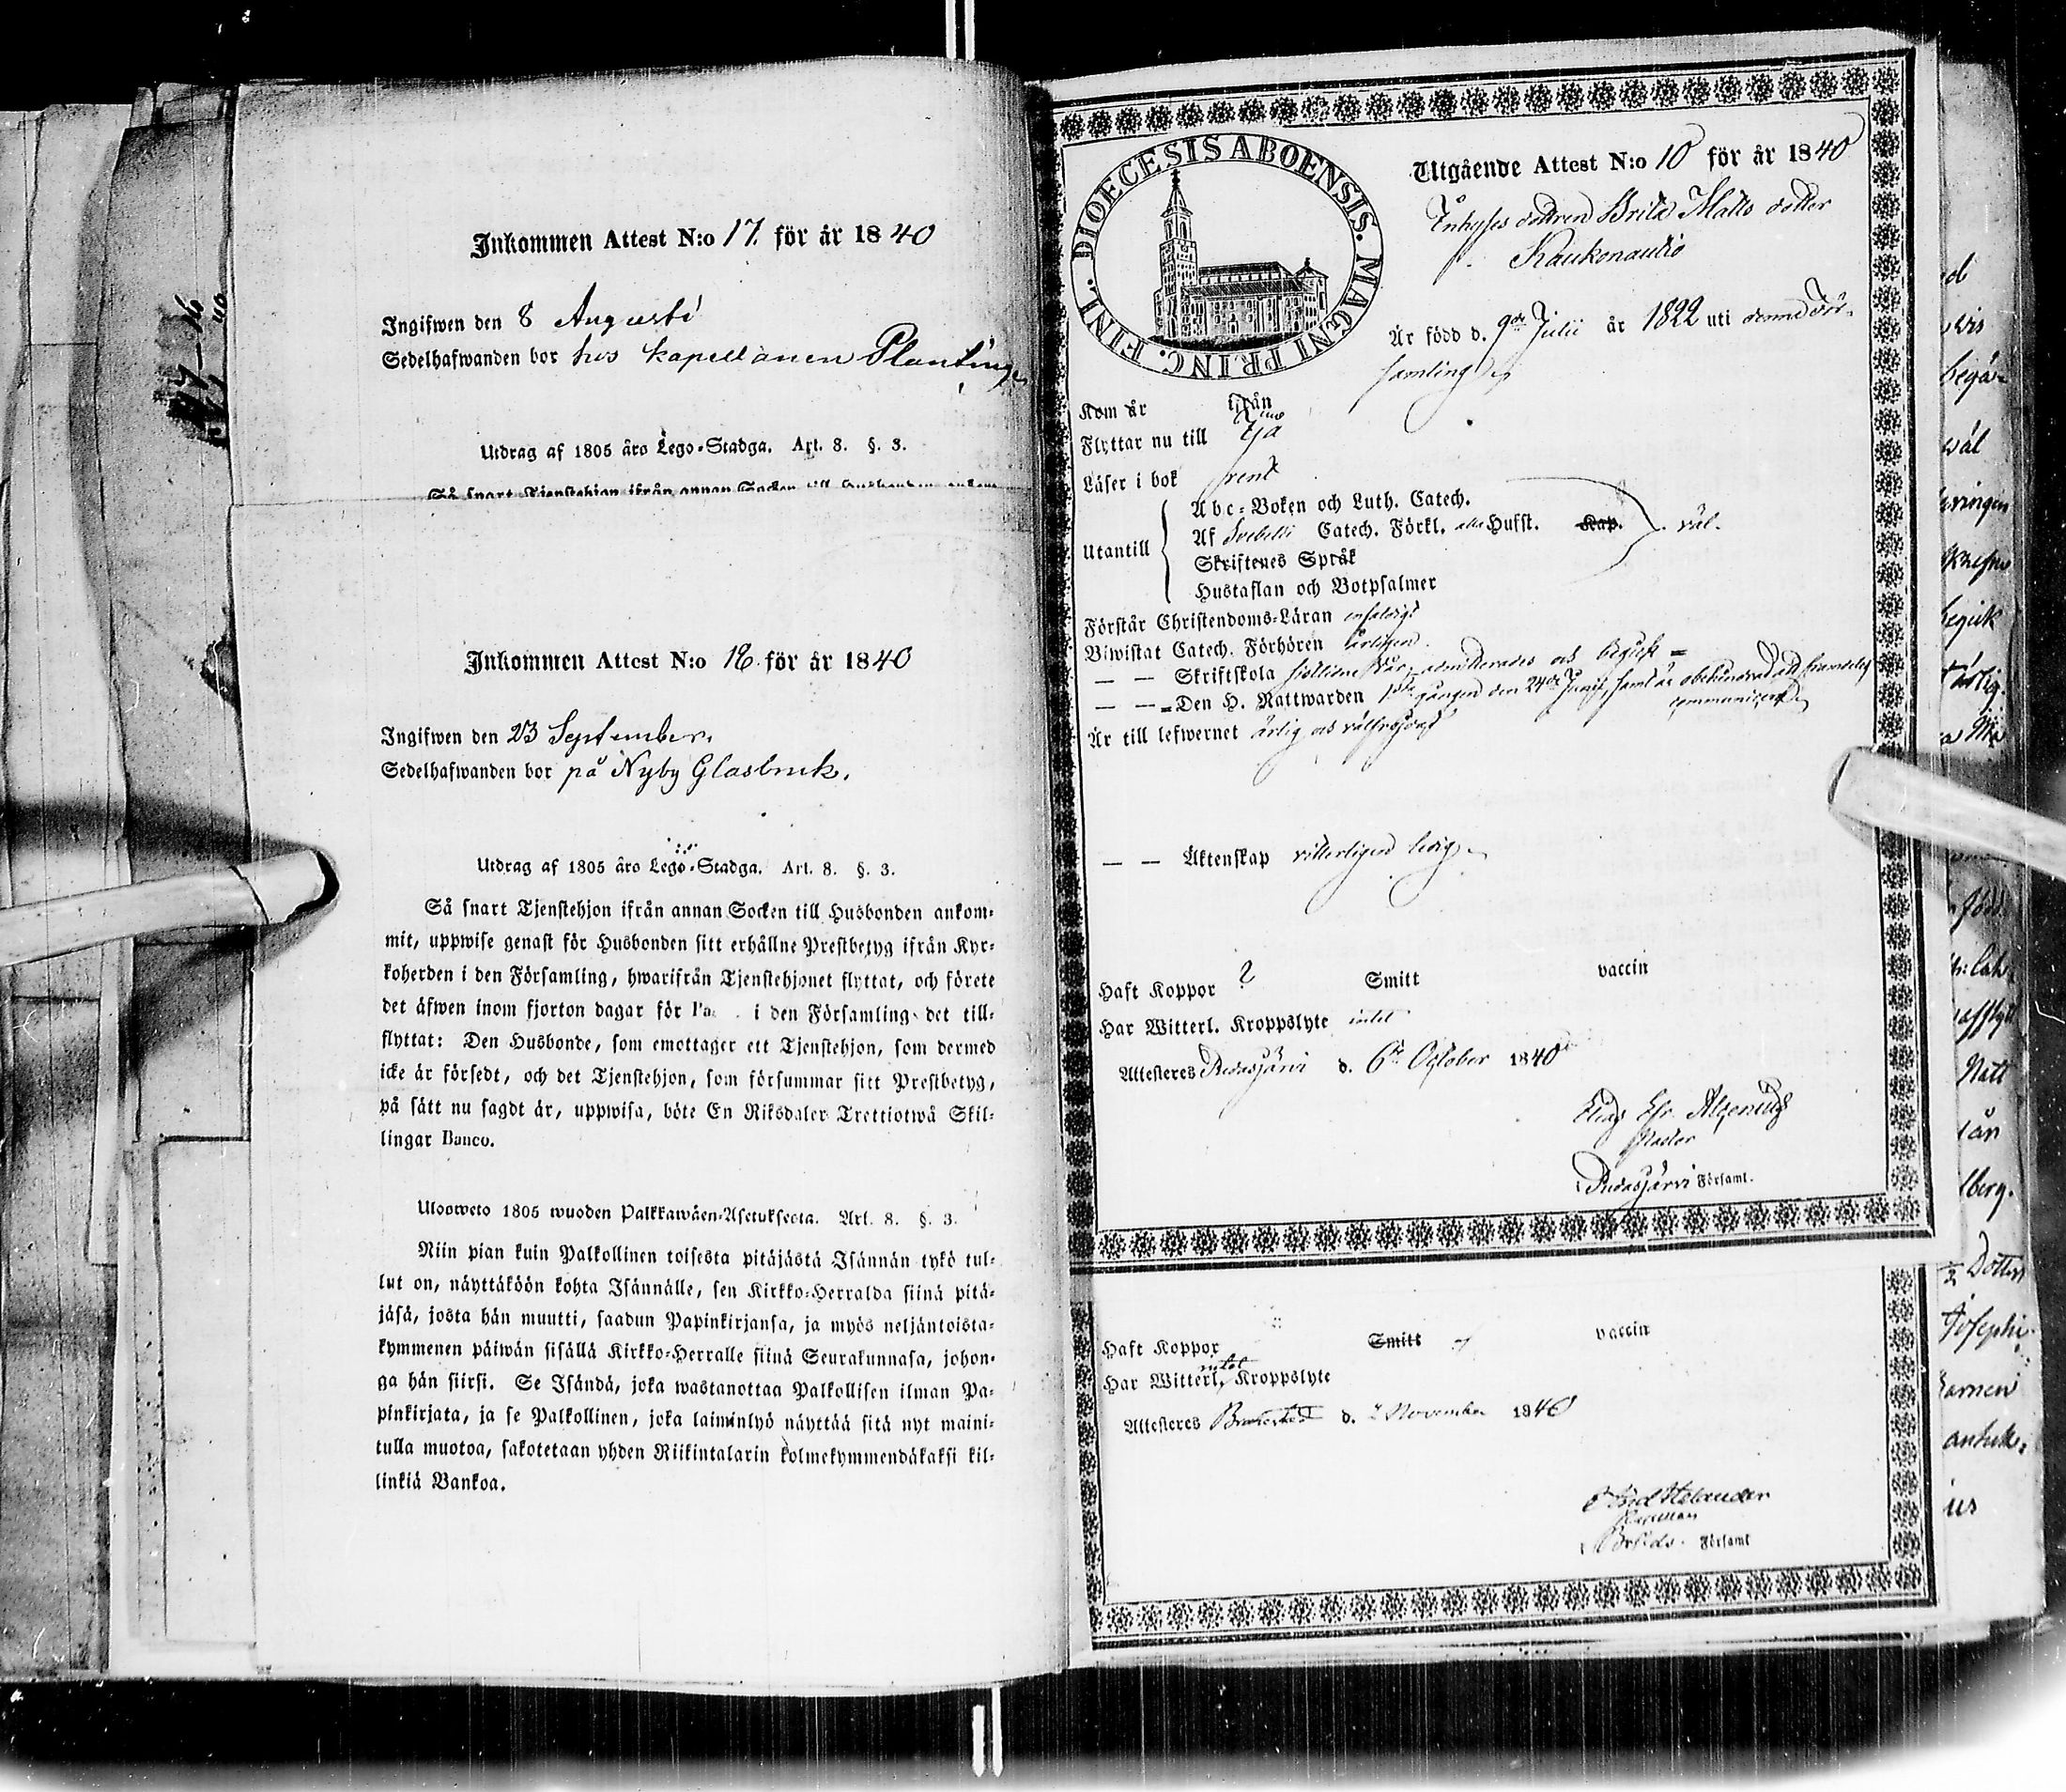 Inkommen Attest N:o 17. för år 1840
Ingifwen den 8 Augusti
Sedelhafwanden bor hos kapellanen Planting
Utdrag af 1805 års Lego-Stadga. Art. 8. §. 3.
Så snart Tjenstehjon ifrån annan Socken till Husbonden ankom-
Inkommen Attest N:o 18. för år 1840
Ingifwen den 23 September.
Sedelhafwanden bor på Nyby Glasbruk.
Utdrag af 1805 års Lego-Stadga. Art. 8. §. 3.
Så snart Tjenstehjon ifrån annan Socken till Husbonden ankom-
mit, uppwise genast för Husbonden sitt erhållne Prestbetyg ifrån Kyr-
koherden i den Församling, hwarifrån Tjenstehjonet flyttat, och förete
det äfwen inom fjorton dagar för Pa i den Församling det till-
flyttat: Den Husbonde, som emottager ett Tjenstehjon, som dermed
icke är försedt, och det Tjenstehjon, som försummar sitt Prestbetyg,
på sätt nu sagdt är, uppwisa, böte En Riksdaler Trettiotwå Skil-
lingar Banco.
Ulosweto 1805 wuoden Palkkawäen-Asetuksesta. Art. 8. §. 3.
Niin pian kuin Palkollinen toisesta pitäjästä Isännän tykö tul-
lut on, näyttäköön kohta Isännälle, sen Kirkko-Herralda siinä pitä-
jäsä, josta hän muutti, saadun Papinkirjansa, ja myös neljäntoista-
kymmenen päiwän sisällä Kirkko-Herralle siinä Seurakunnasa, johon-
ga hän siirsi. Se Isändä, joka wastanottaa Palkollisen ilman Pa-
pinkirjata, ja se Palkollinen, joka laiminlyö näyttää sitä nyt maini-
tulla muotoa, sakotetaan yhden Riikintalarin kolmekymmendäkaksi kil-
linkiä Bankoa.
DIOECESIS ABOENSIS. MAGNI PRINC. FINL.
Utgående Attest N:o 10 för år 1840
Inhyses dottren Brita Matts dotter
Kaukonautio
Är född d. 9de Julii år 1822 uti denna För-
samling
Kom år ifrån
Flyttar nu till
Läser i bok rent
Utantill
Abc-Boken och Luth. Catech.
Af Svebelii Catech. Förkl. Hufst. Kap. väl.
Skriftenes Språk
Hustaflan och Botpsalmer
Förstår Christendoms-Läran enfaldigt
Biwistat Catech. Förhören årligen
— — Skriftskola sistlidne vår, admitterades och begick
— — Den H. Nattwarden 1sta gången den 24de Junii, samt är obehindrad att framdeles
communicera
Är till lefwernet ärlig och välfrejdad
— — Äktenskap vitterligen ledig
Haft Koppor ? Smitt vaccin
Har Witterl. Kroppslyte intet
Attesteres Pudasjärvi d. 6te October 1840
Pastor
Pudasjärvi Församl.
Haft Koppor Smitt vaccin
Har Witterl. intet Kroppslyte
Attesteres Brahestad d. November 1840
Kapellan
Församl